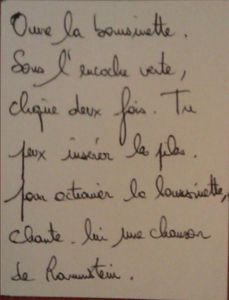 Ouvre la boursinette.
Sous l'encoche verte,
clique deux fois. Tu
peux insérer les piles.
pour actionner la boursinette,
chante-lui une chanson
de Rammstein.